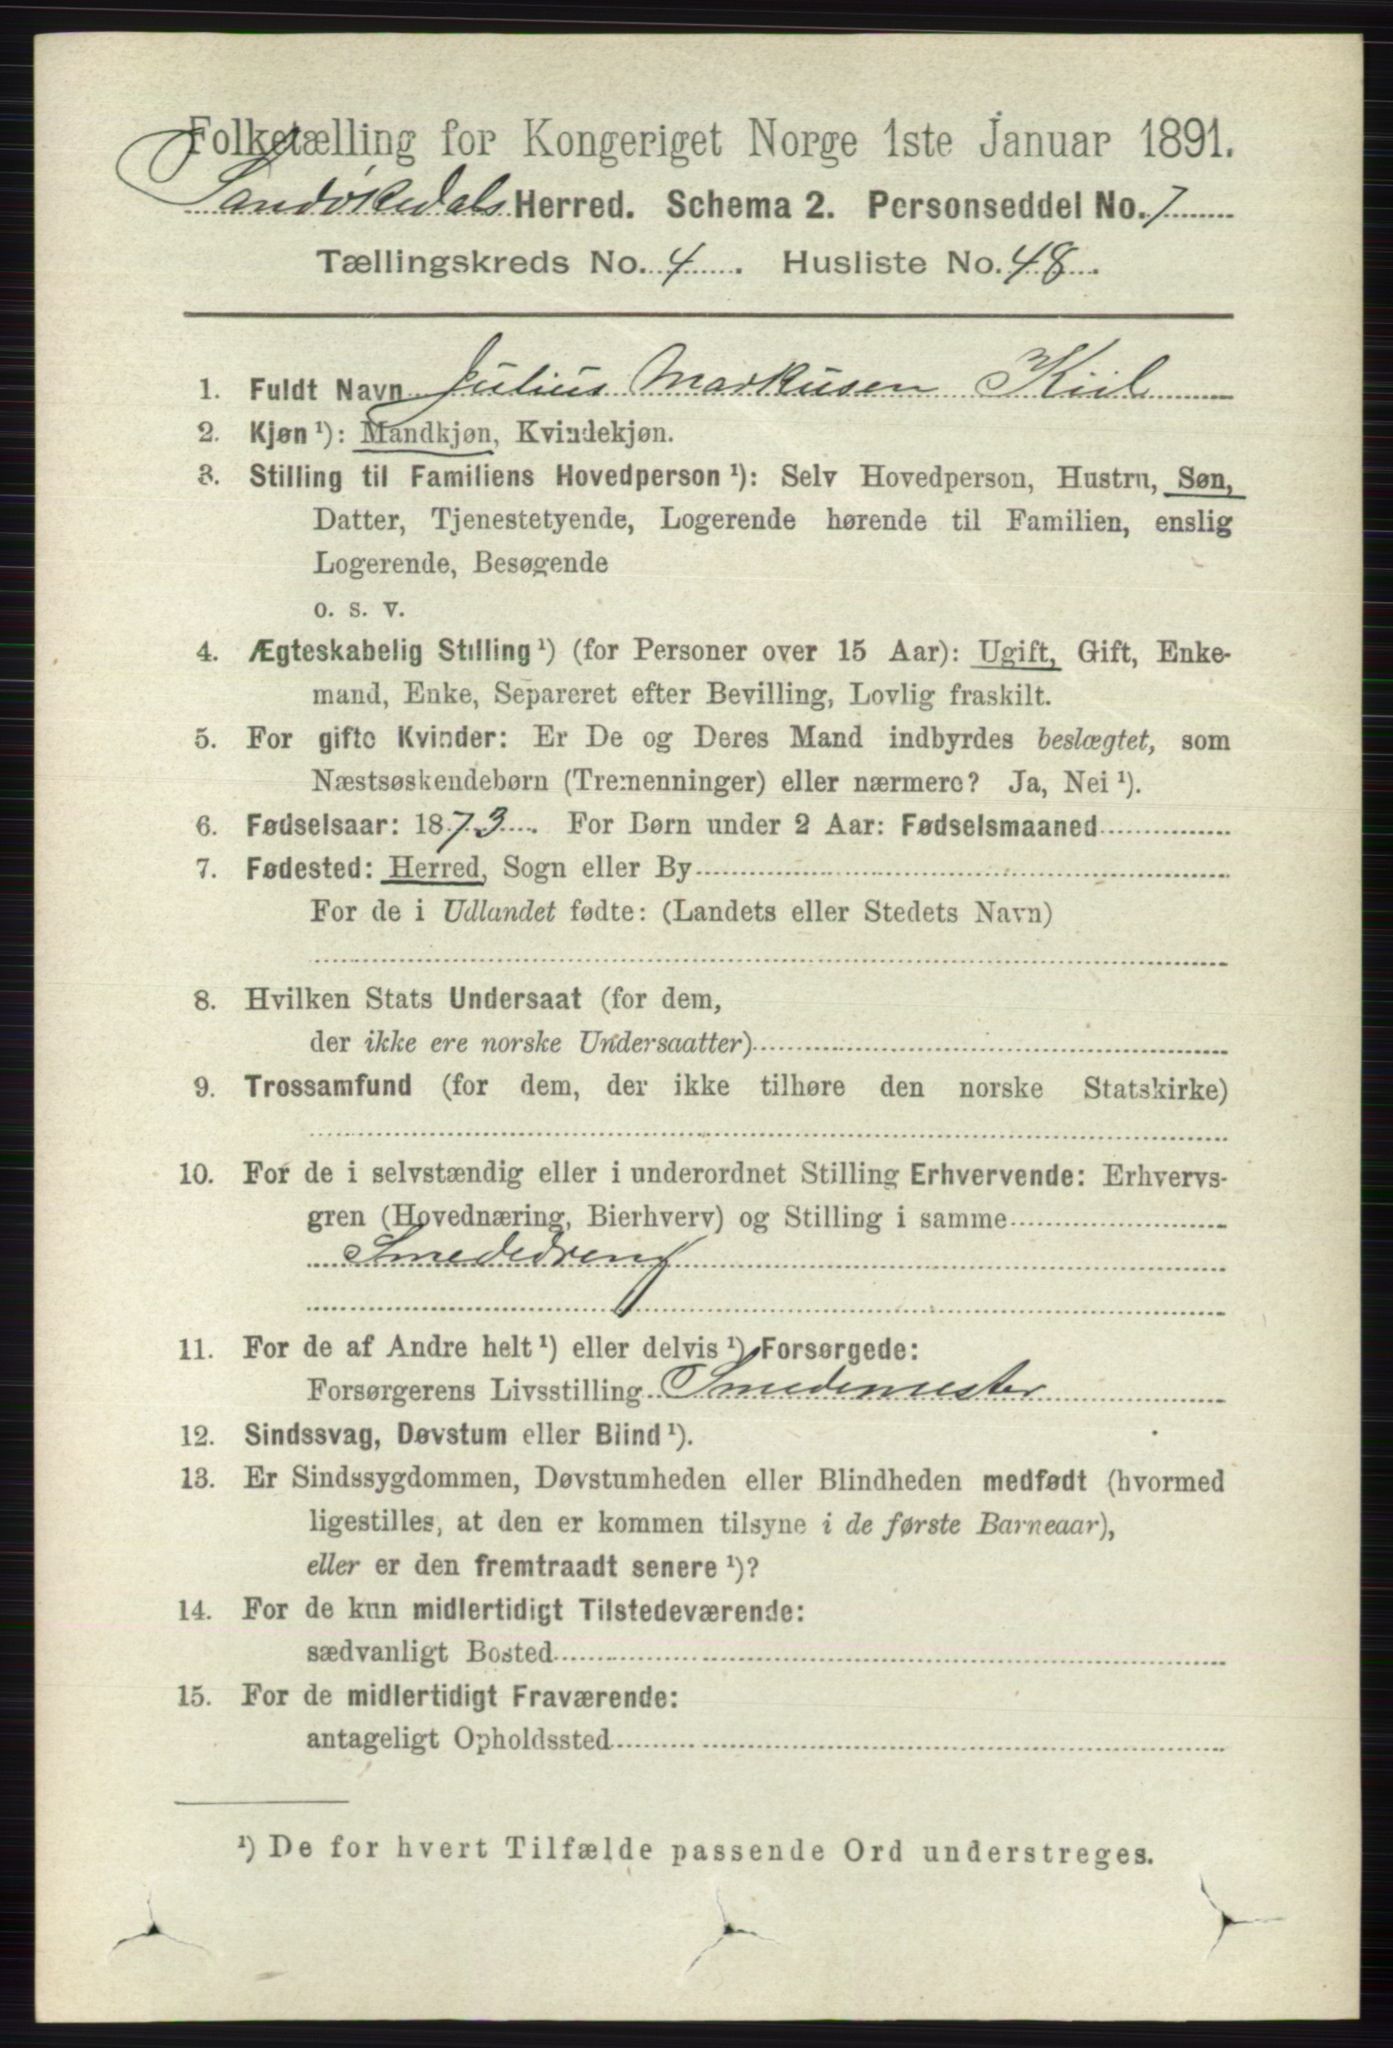 Folketælling for Kongeriget Norge 1ste Januar 1891.
Sandøkedals Herred. Schema 2. Personseddel No. 7
Tællingskreds No. 4. Husliste No. 48.
1. Fuldt Navn Julius Markusen Kiil
2. Kjøn ¹): Mandkjøn, Kvindekjøn.
3. Stilling til Familiens Hovedperson ¹): Selv Hovedperson, Hustru, Søn,
Datter, Tjenestetyende, Logerende hørende til Familien, enslig
Logerende, Besøgende
o. s. v.
4. Ægteskabelig Stilling ¹) (for Personer over 15 Aar): Ugift, Gift, Enke-
mand, Enke, Separeret efter Bevilling, Lovlig fraskilt.
5. For gifte Kvinder: Er De og Deres Mand indbyrdes beslægtet, som
Næstsøskendebørn (Tremenninger) eller nærmere? Ja, Nei ¹).
6. Fødselsaar: 1873. For Børn under 2 Aar: Fødselsmaaned
7. Fødested: Herred, Sogn eller By
For de i Udlandet fødte: (Landets eller Stedets Navn)
8. Hvilken Stats Undersaat (for dem,
der ikke ere norske Undersaatter)
9. Trossamfund (for dem, der ikke tilhøre den norske Statskirke)
10. For de i selvstændig eller i underordnet Stilling Erhvervende: Erhvervs-
gren (Hovednæring, Bierhverv) og Stilling i samme
Smededreng
11. For de af Andre helt ¹) eller delvis ¹) Forsørgede:
Forsørgerens Livsstilling Smedemester
12. Sindssvag, Døvstum eller Blind ¹).
13. Er Sindssygdommen, Døvstumheden eller Blindheden medfødt (hvormed
ligestilles, at den er kommen tilsyne i de første Barneaar),
eller er den fremtraadt senere ¹)?
14. For de kun midlertidigt Tilstedeværende:
sædvanligt Bosted
15. For de midlertidigt Fraværende:
antageligt Opholdssted
¹) De for hvert Tilfælde passende Ord understreges.